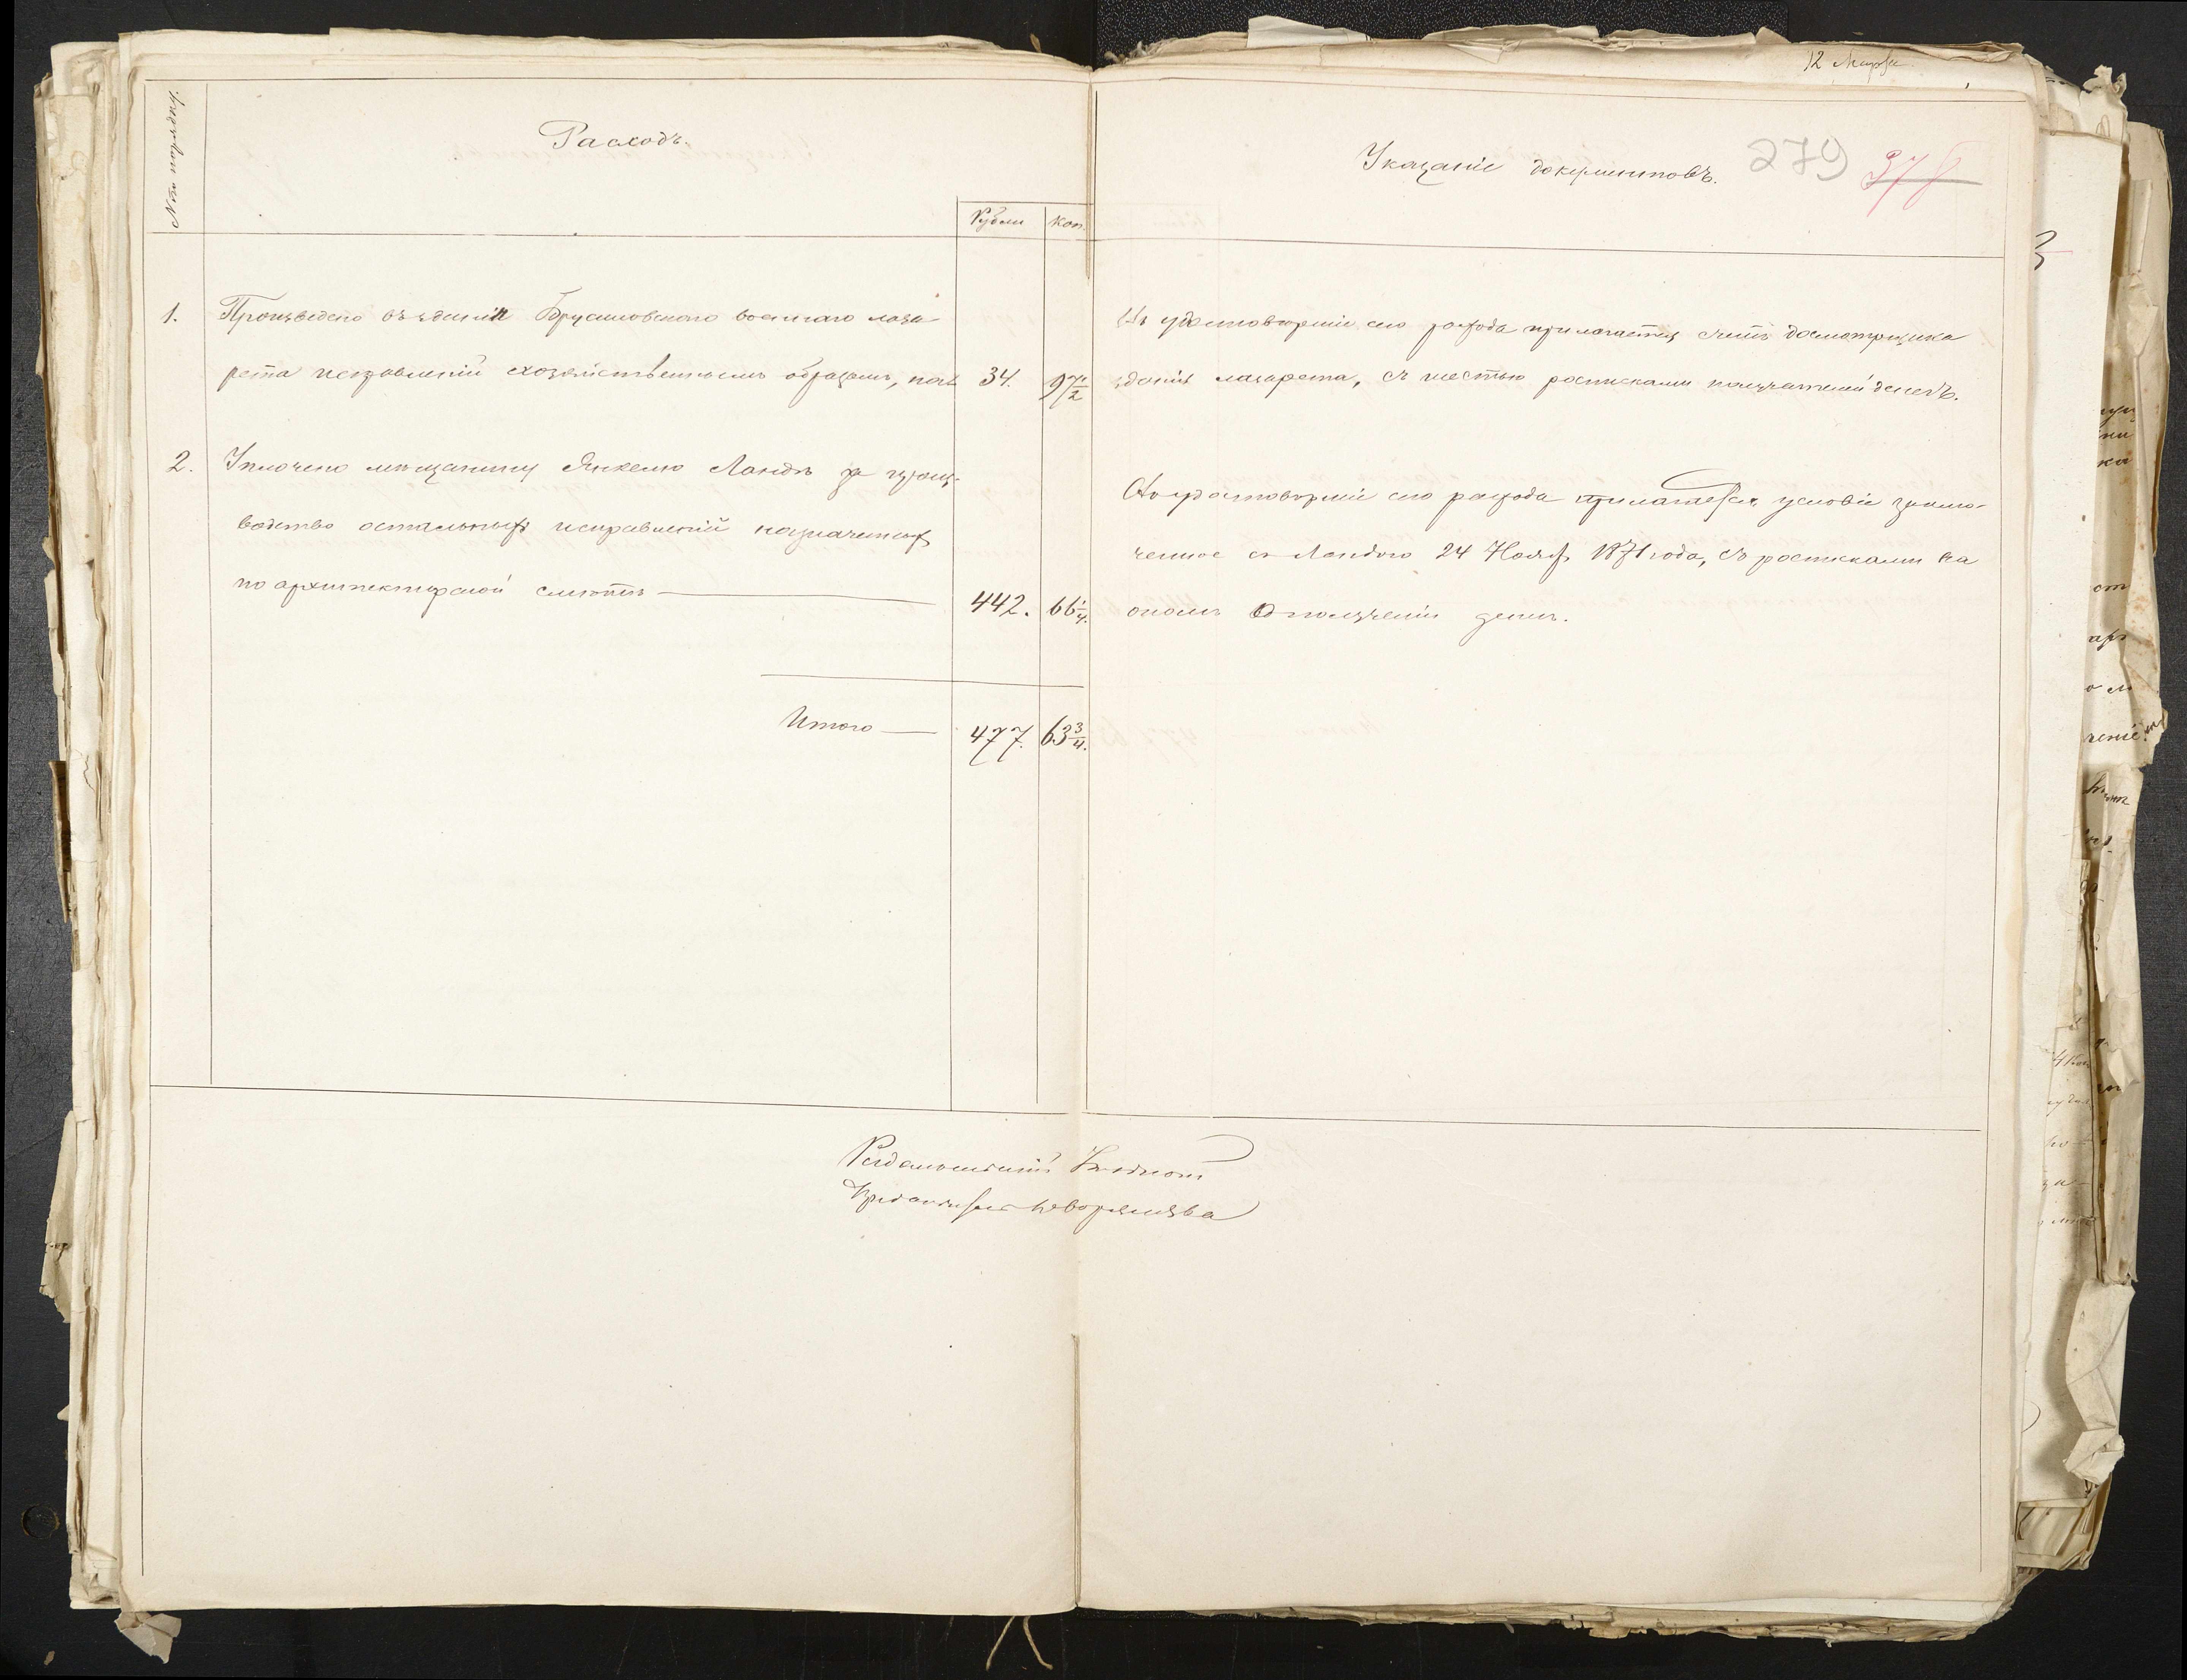 12 Марта
№№ по порядку.
Расходъ.
Рубли
Коп.
Указаніе документовъ.
279
1.
Произведено въ зданіи Брусиловскаго военнаго лаза-
рета исправленій хозяйственнымъ образомъ, на
34.
97 1/2
2.
Уплочено мѣщанину Янкелю Ландѣ за произ-
водство остальныхъ исправленій назначенныхъ
по архитекторской смѣтѣ
442.
66 1/4.
Итого
477.
63 3/4.
Въ удостовѣреніе сего расхода прилагается счетъ досмотрщика
зданія лазарета, съ шестью росписками получателей денегъ.
Въ удостовѣреніе сего расхода прилагается условіе заклю-
ченное съ Ландою 24 Ноября 1871 года, съ росписками на
ономъ о полученіи денегъ.